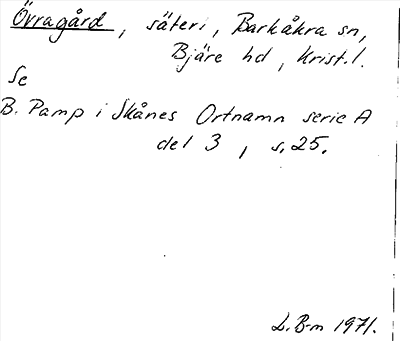 Övragård, säteri, Barkåkra sn,
Bjäre hd, Krist.l.
Se
B. Pamp i Skånes Ortnamn serie A
del 3, s. 25.
L. B-m 1971.